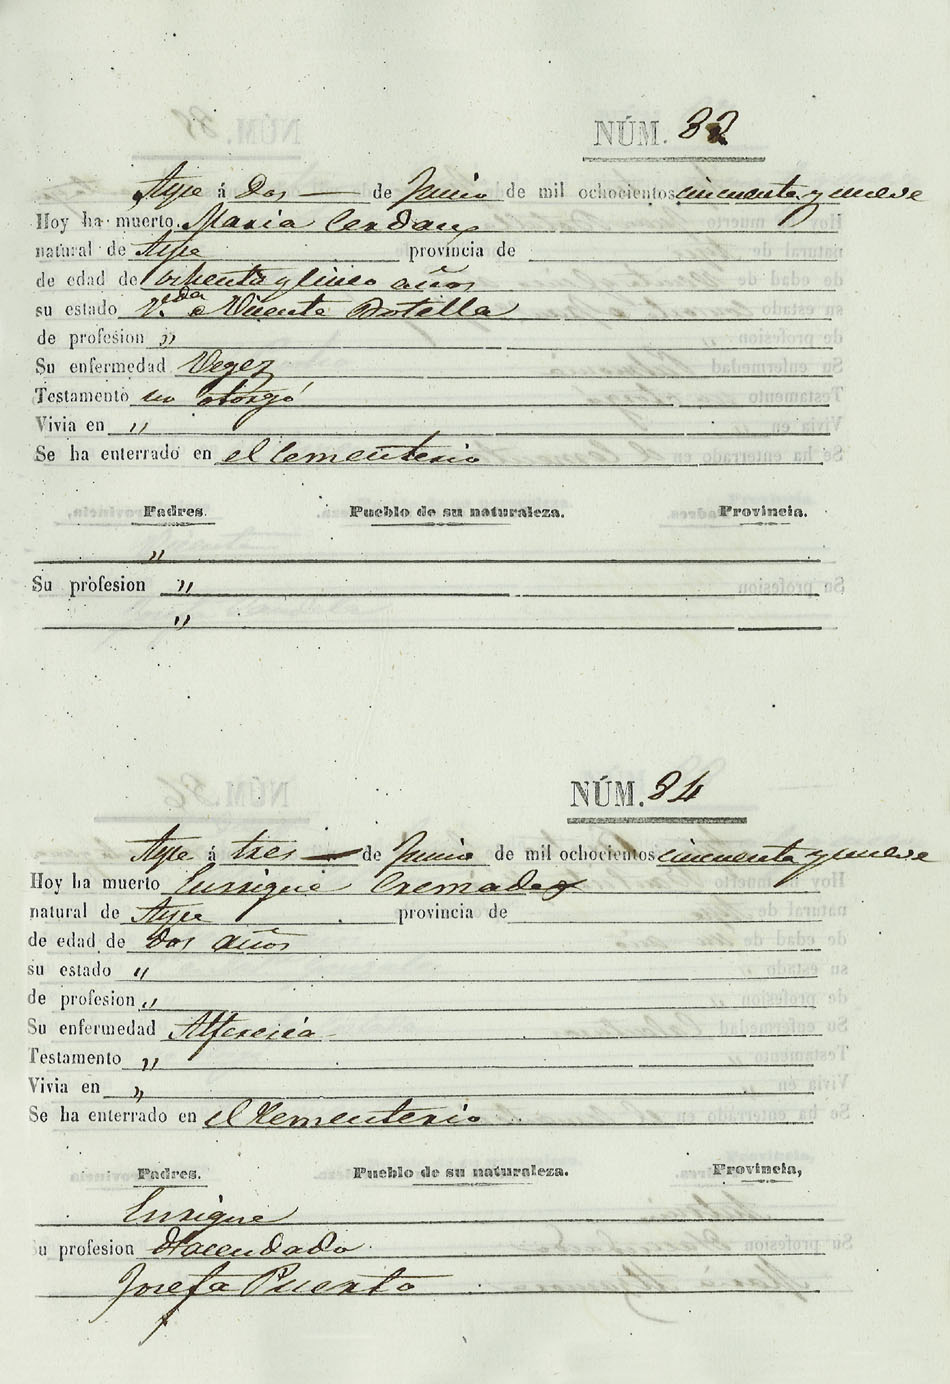 NÚM. 83
Aspe á Dos de Junio de mil ochocientos cincuenta y nueve
Hoy ha muerto Maria Cerdan
natural de Aspe provincia de
de edad de ochenta y cinco años
su estado V.da de Vicente Botella
de profesion "
Su enfermedad Vegez
Testamento no otorgó
Vivia en "
Se ha enterrado en el Cementerio
Padres. Pueblo de su naturaleza. Provincia.
"
Su profesion "
"
NÚM. 84
Aspe á tres de Junio de mil ochocientos cincuenta y nueve
Hoy ha muerto Enrrique Cremades
natural de Aspe provincia de
de edad de dos años
su estado "
de profesion "
Su enfermedad Alferecia
Testamento "
Vivia en "
Se ha enterrado en el Cementerio
Padres. Pueblo de su naturaleza. Provincia,
Enrrique
Su profesion Hacendado
Josefa Puerto